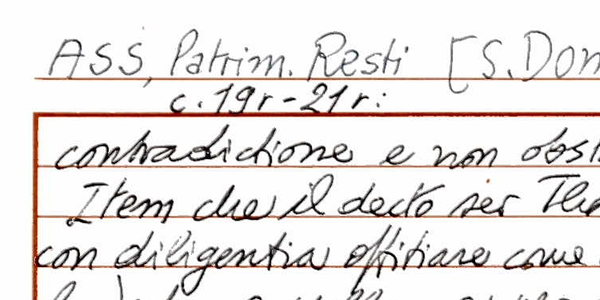 ASS, Patrim. Resti [S. Don
c. 19r-21r:
contradictione e non obst
Item che il decto ser Th
con diligentia offitiare come